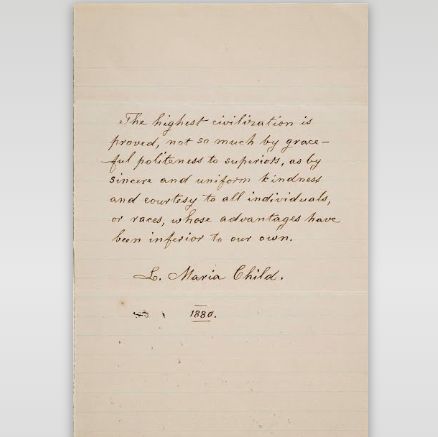 The highest civilization is
proved, not so much by grace-
ful politeness to superiors, as by
sincere and uniform kindness
and courtesy to all individuals,
or races, whose advantages have
been inferior to our own.
L. Maria Child.
1880.